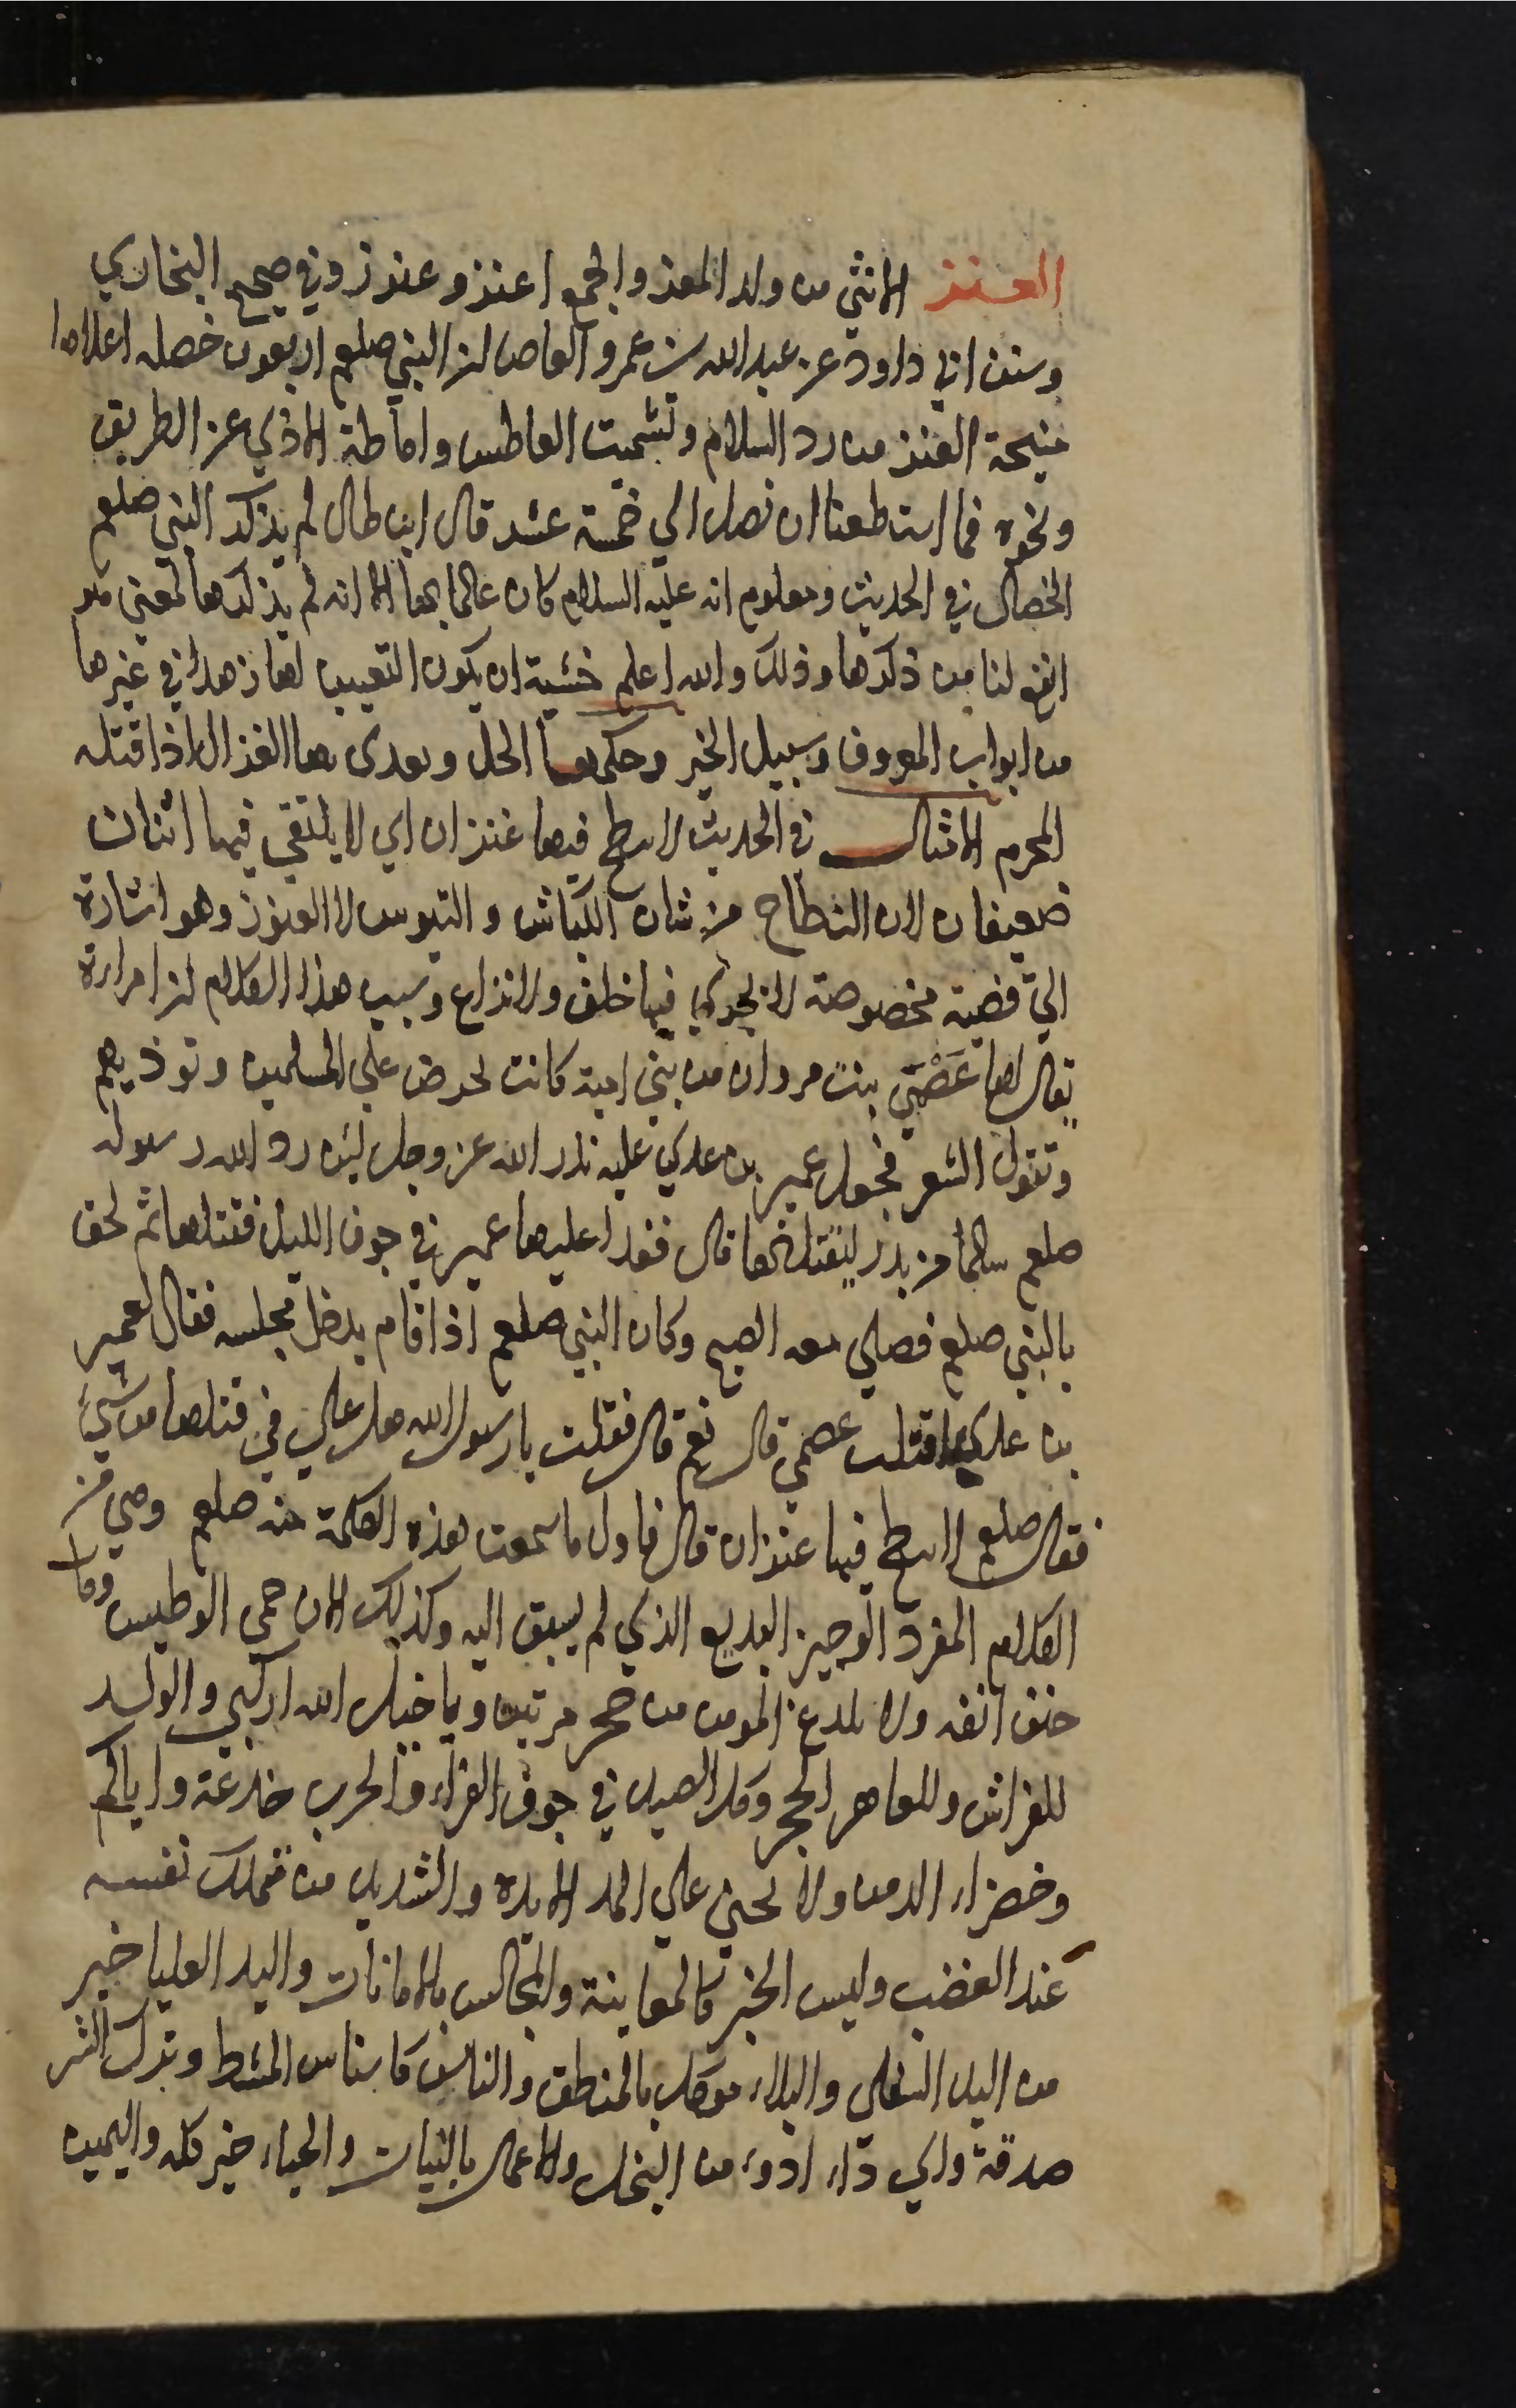 العنز الانثي من ولد المعز والجمع اعنز وعنوز وفي صحيح البخاري
وسنن ابي داود عن عبد الله بن عمرو العاص ان النبي صلعم اربعون خصله اعلاها
منيحة العنز من رد السلام وتشميت العاطس واماطة الاذي عن الطريق
ونحوه فما استطعنا ان نصل الي خمسة عشر قال ابن بطال لم يذكر النبي صلعم
الخصال في الحديث ومعلوم انه عليه السلام كان عالما بها الا انه لم يذكرها لمعني هو
انفع لنا من ذكرها وذلك والله اعلم خشية ان يكون التعيين لها زهدا في غيرها
من ابواب المعروف وسبيل الخير وحكمها الحل ويفدى بها الغزال اذا قتله
المحرم الامثال في الحديث لا ينتطح فيها عنزان اي لا يلتقي فيها اثنان
ضعيفان لان النطاح من شان الكباش والتيوس لا العنوز وهو اشارة
الي قضية مخصوصة لا يجري فيها خلف ولا نزاع وسبب هذا الكلام ان امراءة
يقال لها عَصْمَي بنت مروان من بني امية كانت تحرض علي المسلمين وتوذيهم
وتقول الشعر فجعل عمير بن عدي عليه نذر الله عز وجل لين رد الله رسوله
صلعم سالما من بدر ليقتلنها قال فغدا عليها عمير في جوف الليل فقتلها ثم لحق
بالنبي صلعم فصلي معه الصبح وكان النبي صلعم اذا قام يدخل مجلسه فقال لعمير
بن عدي اقتلت عصمي قال نعم قال فقلت يا رسول الله هل علي في قتلها من شيء
فقال صلعم لا ينتطح فيها عنزان قال فاول ما سمعت هذه الكلمة منه صلعم وهي من
الكلام المفرد الوجيز البديع الذي لم يسبق اليه وكذلك الان حمي الوطيس ومات
حتف انفه ولا يلدغ المومن من جحر مرتين ويا خيل الله اركبي والولد
للفراش وللعاهر الحجر وكل الصيد في جوف الفراء والحرب خدعة واياكم
وخضراء الدمن ولا تجني علي المرء الا يده والشديد من تملك نفسه
عند الغضب وليس الخبر كالمعاينة والمجالس بالامانات واليد العليا خير
من اليد السفلي والبلاء موكل بالمنطق والناس كاسنان المشط وترك الشر
صدقة واي داء ادوء من البخل والاعمال بالنيات والحياء خير كله واليمين